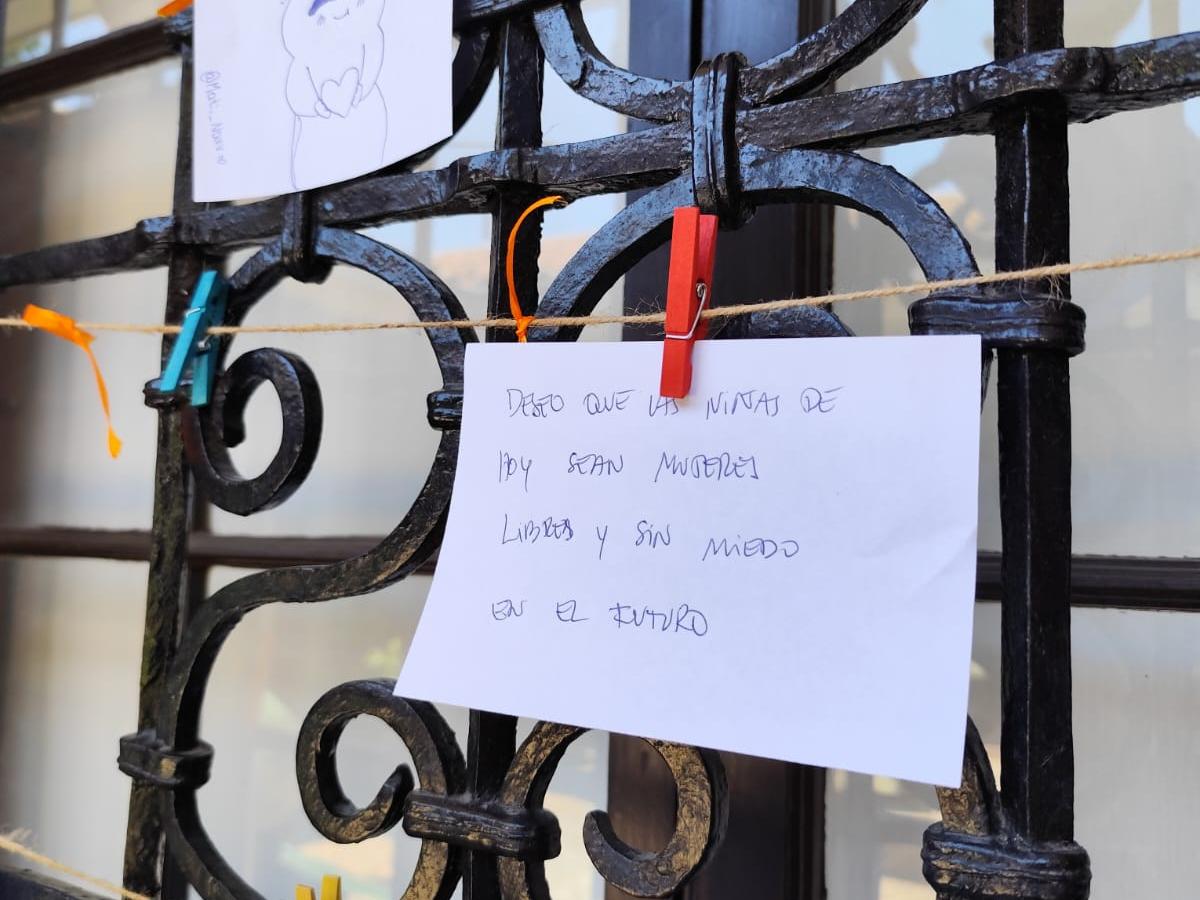 DESEO QUE LAS NIÑAS DE
HOY SEAN MUJERES
LIBRES Y SIN MIEDO
EN EL FUTURO